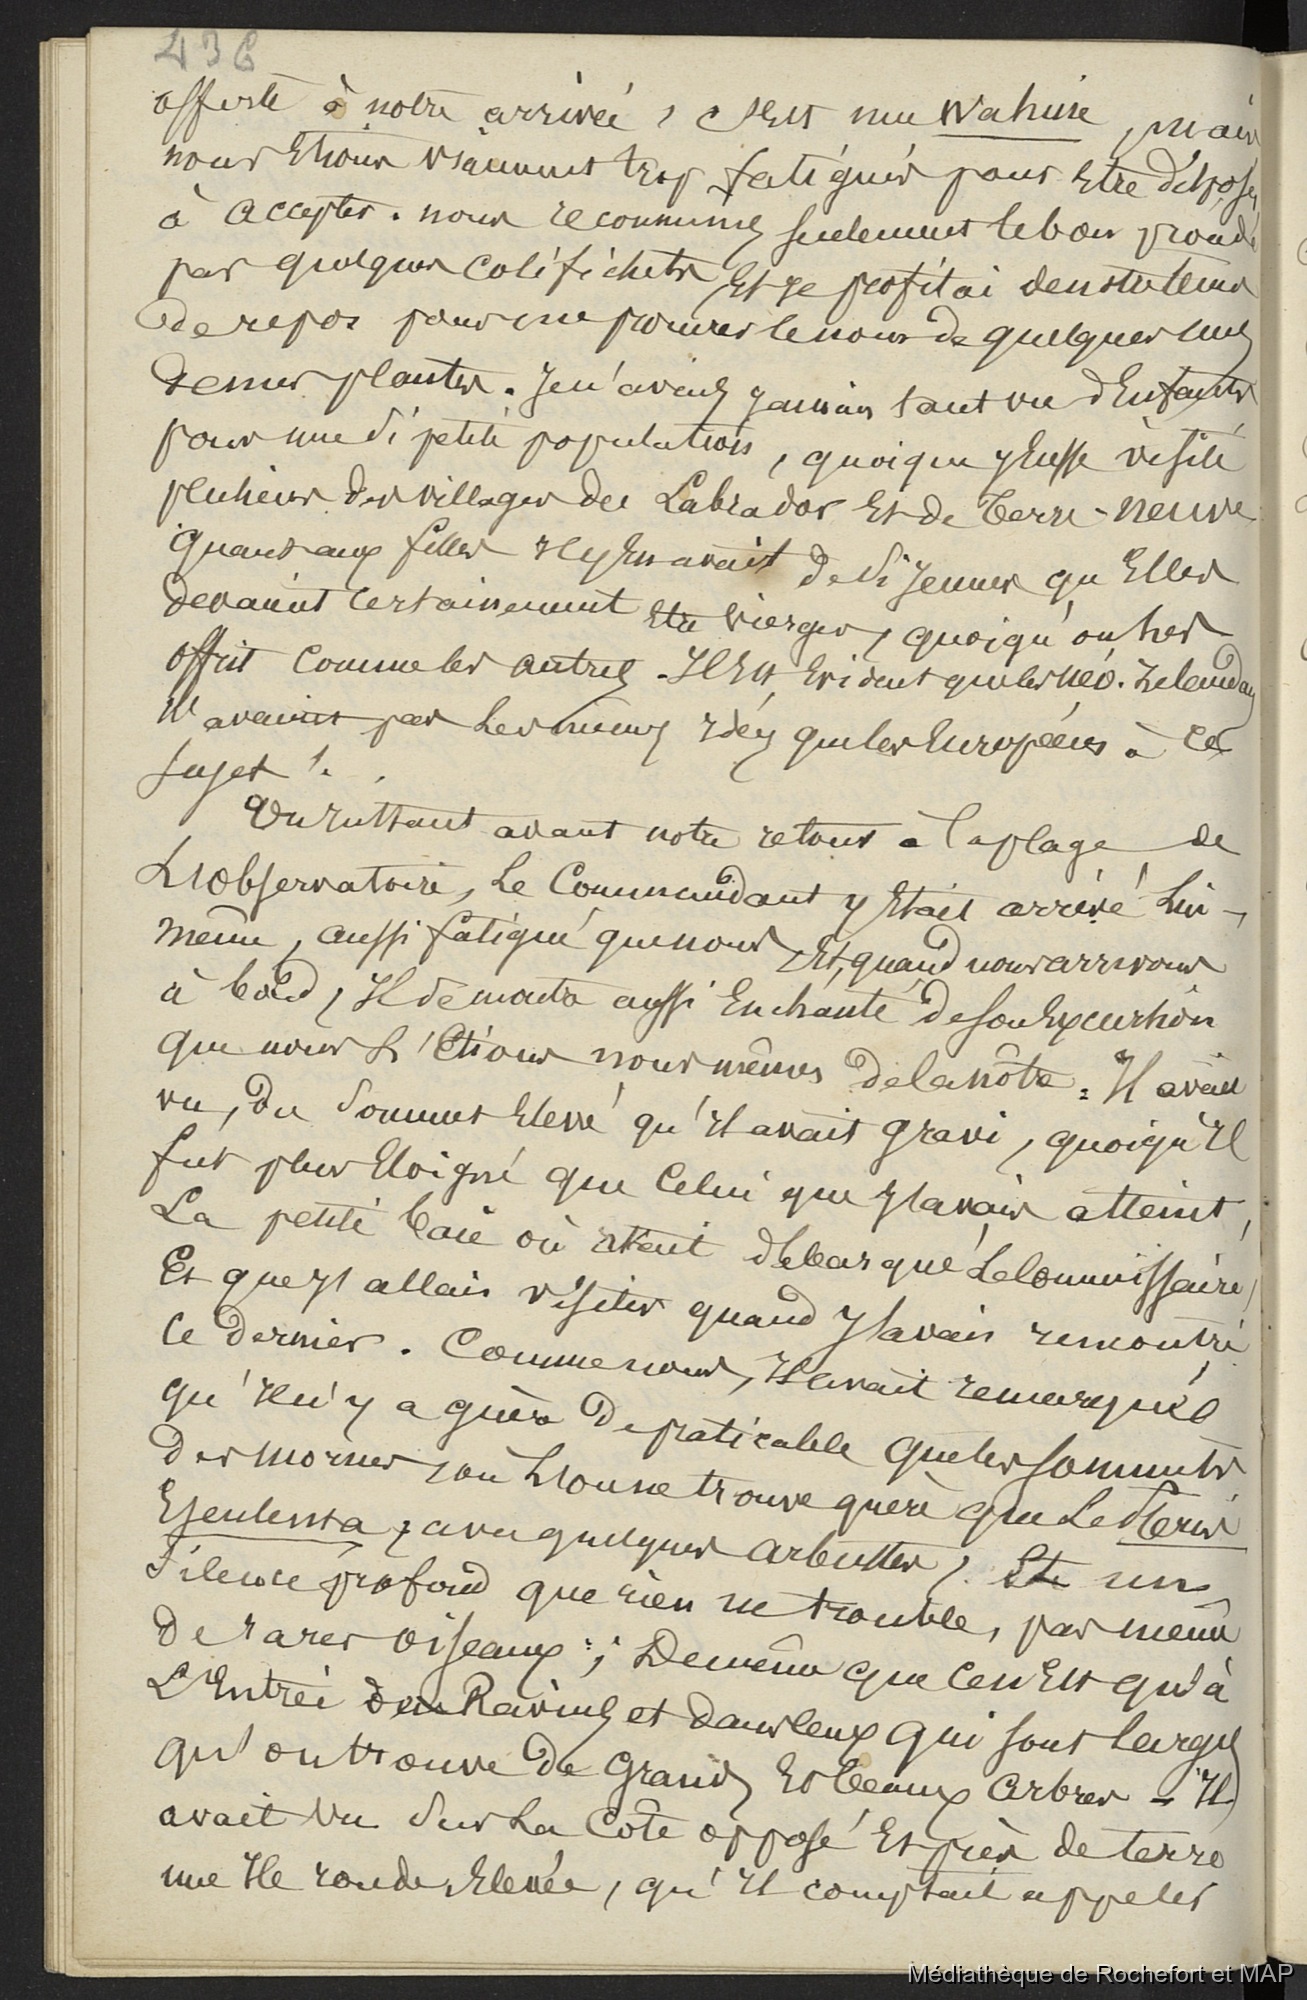 436
offerte à notre arrivée, c'Est une Wahine, mais
nous Etions vraiment trop fatigués pour Etre disposés
à accepter. nous reconnumes seulement le bon procédé
par quelques colifichets, Et je profitai de notre tems
de repos pour me procurer le nom de quelques unes
de mes plantes. Je n'avais jamais tant vu d'Enfants
pour une si petite population, quoique j'Eusse visité
plusieurs des villages du Labrador Et de Terre-neuve
quant aux filles il y En avait de si jeunes qu'Elles
devaient certainement Etre vierges, quoiqu'on les
offrit comme les autres. Il Est Evident que les néo-Zélandais
n'avaient pas les mêmes idées que les Européens à ce
sujet !.
Un instant avant notre retour à la plage de
L'observatoire, le Commandant y Etait arrivé lui-
même, aussi fatigué que nous Et, quand nous arrivons
à bord, il se montra aussi Enchanté de son Excursion
que nous L'Etions nous mêmes de la nôtre. Il avait
vu, du sommet Elevé qu'il avait gravi, quoiqu'il
fut plus Eloigné que celui que j'avais atteint,
La petite baie où était débarqué Le Commissaire,
Et que j'allais visiter quand j'avais rencontré
ce dernier. Comme nous, Il avait remarqué
qu'il n'y a guère de praticable que les sommets
des mornes, où L'on ne trouve guère que Le Pteris
Esculenta, avec quelques arbustes, Et un
silence profond que rien ne trouble, pas même
de rares oiseaux ; De même que ce n'Est qu'à
L'Entrée des Ravins et dans ceux qui sont larges
qu'on trouve de grands Et beaux arbres - Il
avait vu sur La Côte opposé Et près de terre
une Ile ronde, Elevée, qu'il comptait appeler
Médiathèque de Rochefort et MAP